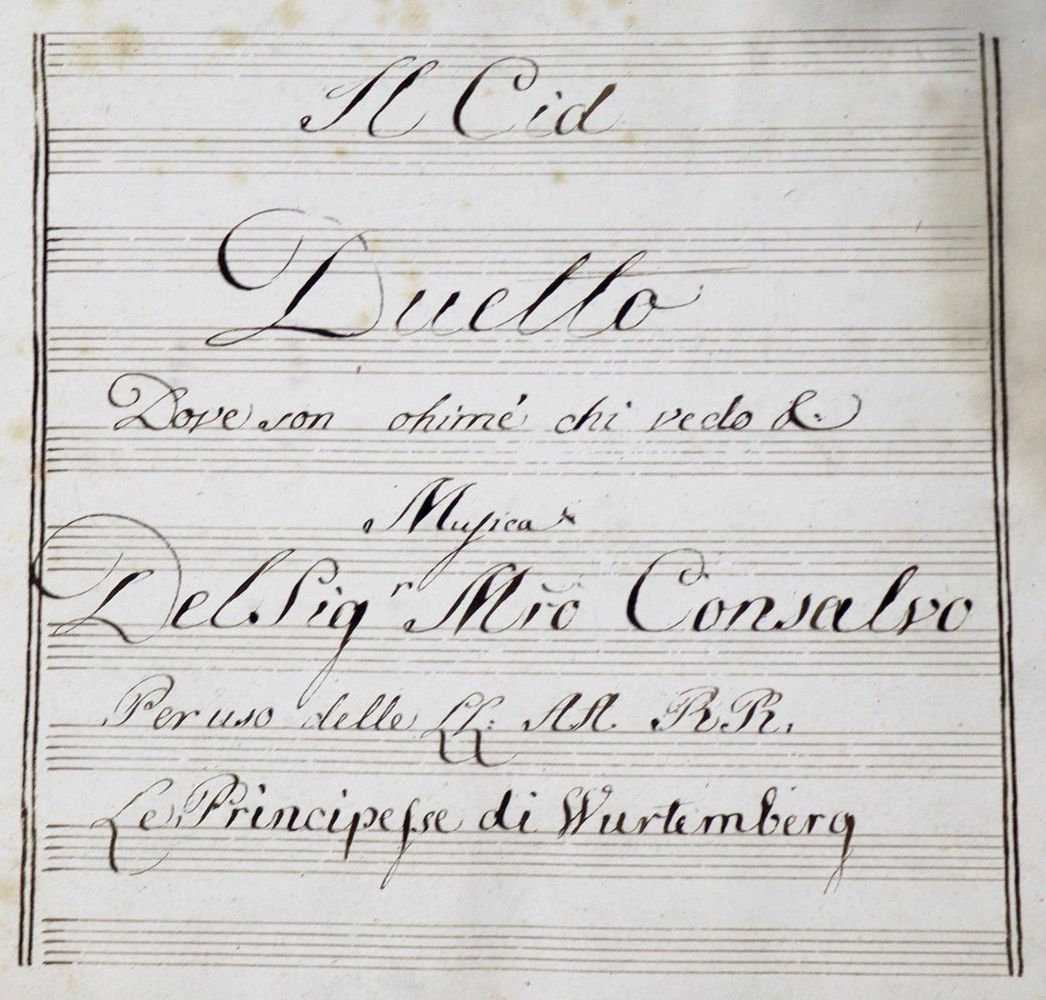 Il Cid
Duetto
Dove son ohimé chi vedo &:
Musica
Del Sig.r Mro Consalvo
Per uso delle LL: AA. RR.
Le Principesse di Wurtemberg